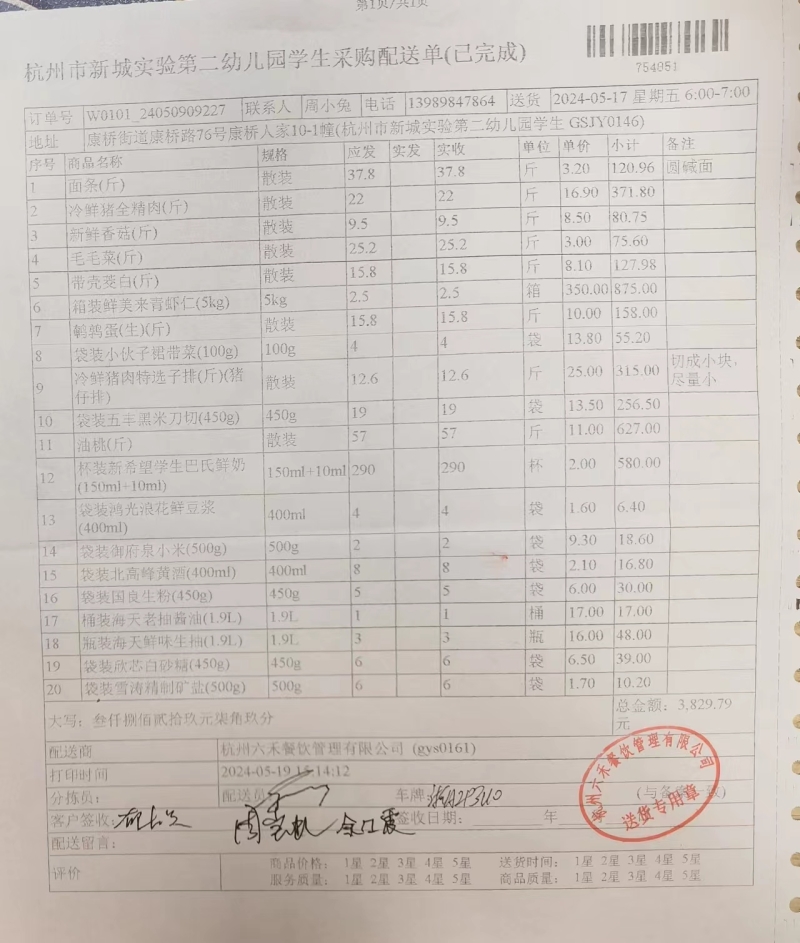 第1页/共1页
杭州市新城实验第二幼儿园学生采购配送单(已完成)
754951
订单号 W0101_24050909227 联系人 周小兔 电话 13989847864 送货 2024-05-17 星期五 6:00-7:00
地址 康桥街道康桥路76号康桥人家10-1幢(杭州市新城实验第二幼儿园学生 GSJY0146)
序号 商品名称 规格 应发 实发 实收 单位 单价 小计 备注
1 面条(斤) 散装 37.8 37.8 斤 3.20 120.96 圆碱面
2 冷鲜猪全精肉(斤) 散装 22 22 斤 16.90 371.80
3 新鲜香菇(斤) 散装 9.5 9.5 斤 8.50 80.75
4 毛毛菜(斤) 散装 25.2 25.2 斤 3.00 75.60
5 带壳茭白(斤) 散装 15.8 15.8 斤 8.10 127.98
6 箱装鲜美来青虾仁(5kg) 5kg 2.5 2.5 箱 350.00 875.00
7 鹌鹑蛋(生)(斤) 散装 15.8 15.8 斤 10.00 158.00
8 袋装小伙子裙带菜(100g) 100g 4 4 袋 13.80 55.20
9 冷鲜猪肉特选子排(斤)(猪 散装 12.6 12.6 斤 25.00 315.00 切成小块,
仔排) 尽量小
10 袋装五丰黑米刀切(450g) 450g 19 19 袋 13.50 256.50
11 油桃(斤) 散装 57 57 斤 11.00 627.00
12 杯装新希望学生巴氏鲜奶 150ml+10ml 290 290 杯 2.00 580.00
(150ml+10ml)
13 袋装鸿光浪花鲜豆浆 400ml 4 4 袋 1.60 6.40
(400ml)
14 袋装御府泉小米(500g) 500g 2 2 袋 9.30 18.60
15 袋装北高峰黄酒(400ml) 400ml 8 8 袋 2.10 16.80
16 袋装国良生粉(450g) 450g 5 5 袋 6.00 30.00
17 桶装海天老抽酱油(1.9L) 1.9L 1 1 桶 17.00 17.00
18 瓶装海天鲜味生抽(1.9L) 1.9L 3 3 瓶 16.00 48.00
19 袋装欣芯白砂糖(450g) 450g 6 6 袋 6.50 39.00
20 袋装雪涛精制矿盐(500g) 500g 6 6 袋 1.70 10.20
大写: 叁仟捌佰贰拾玖元柒角玖分 总金额: 3,829.79
元
配送商 杭州六禾餐饮管理有限公司 (gys0161)
打印时间 2024-05-19 15:14:12
分拣员: 配送员 车牌
客户签收: 余江霞 签收日期: 年
配送留言:
杭州六禾餐饮管理有限公司
送货专用章
评价 商品价格: 1星 2星 3星 4星 5星 送货时间: 1星 2星 3星 4星 5星
服务质量: 1星 2星 3星 4星 5星 商品质量: 1星 2星 3星 4星 5星